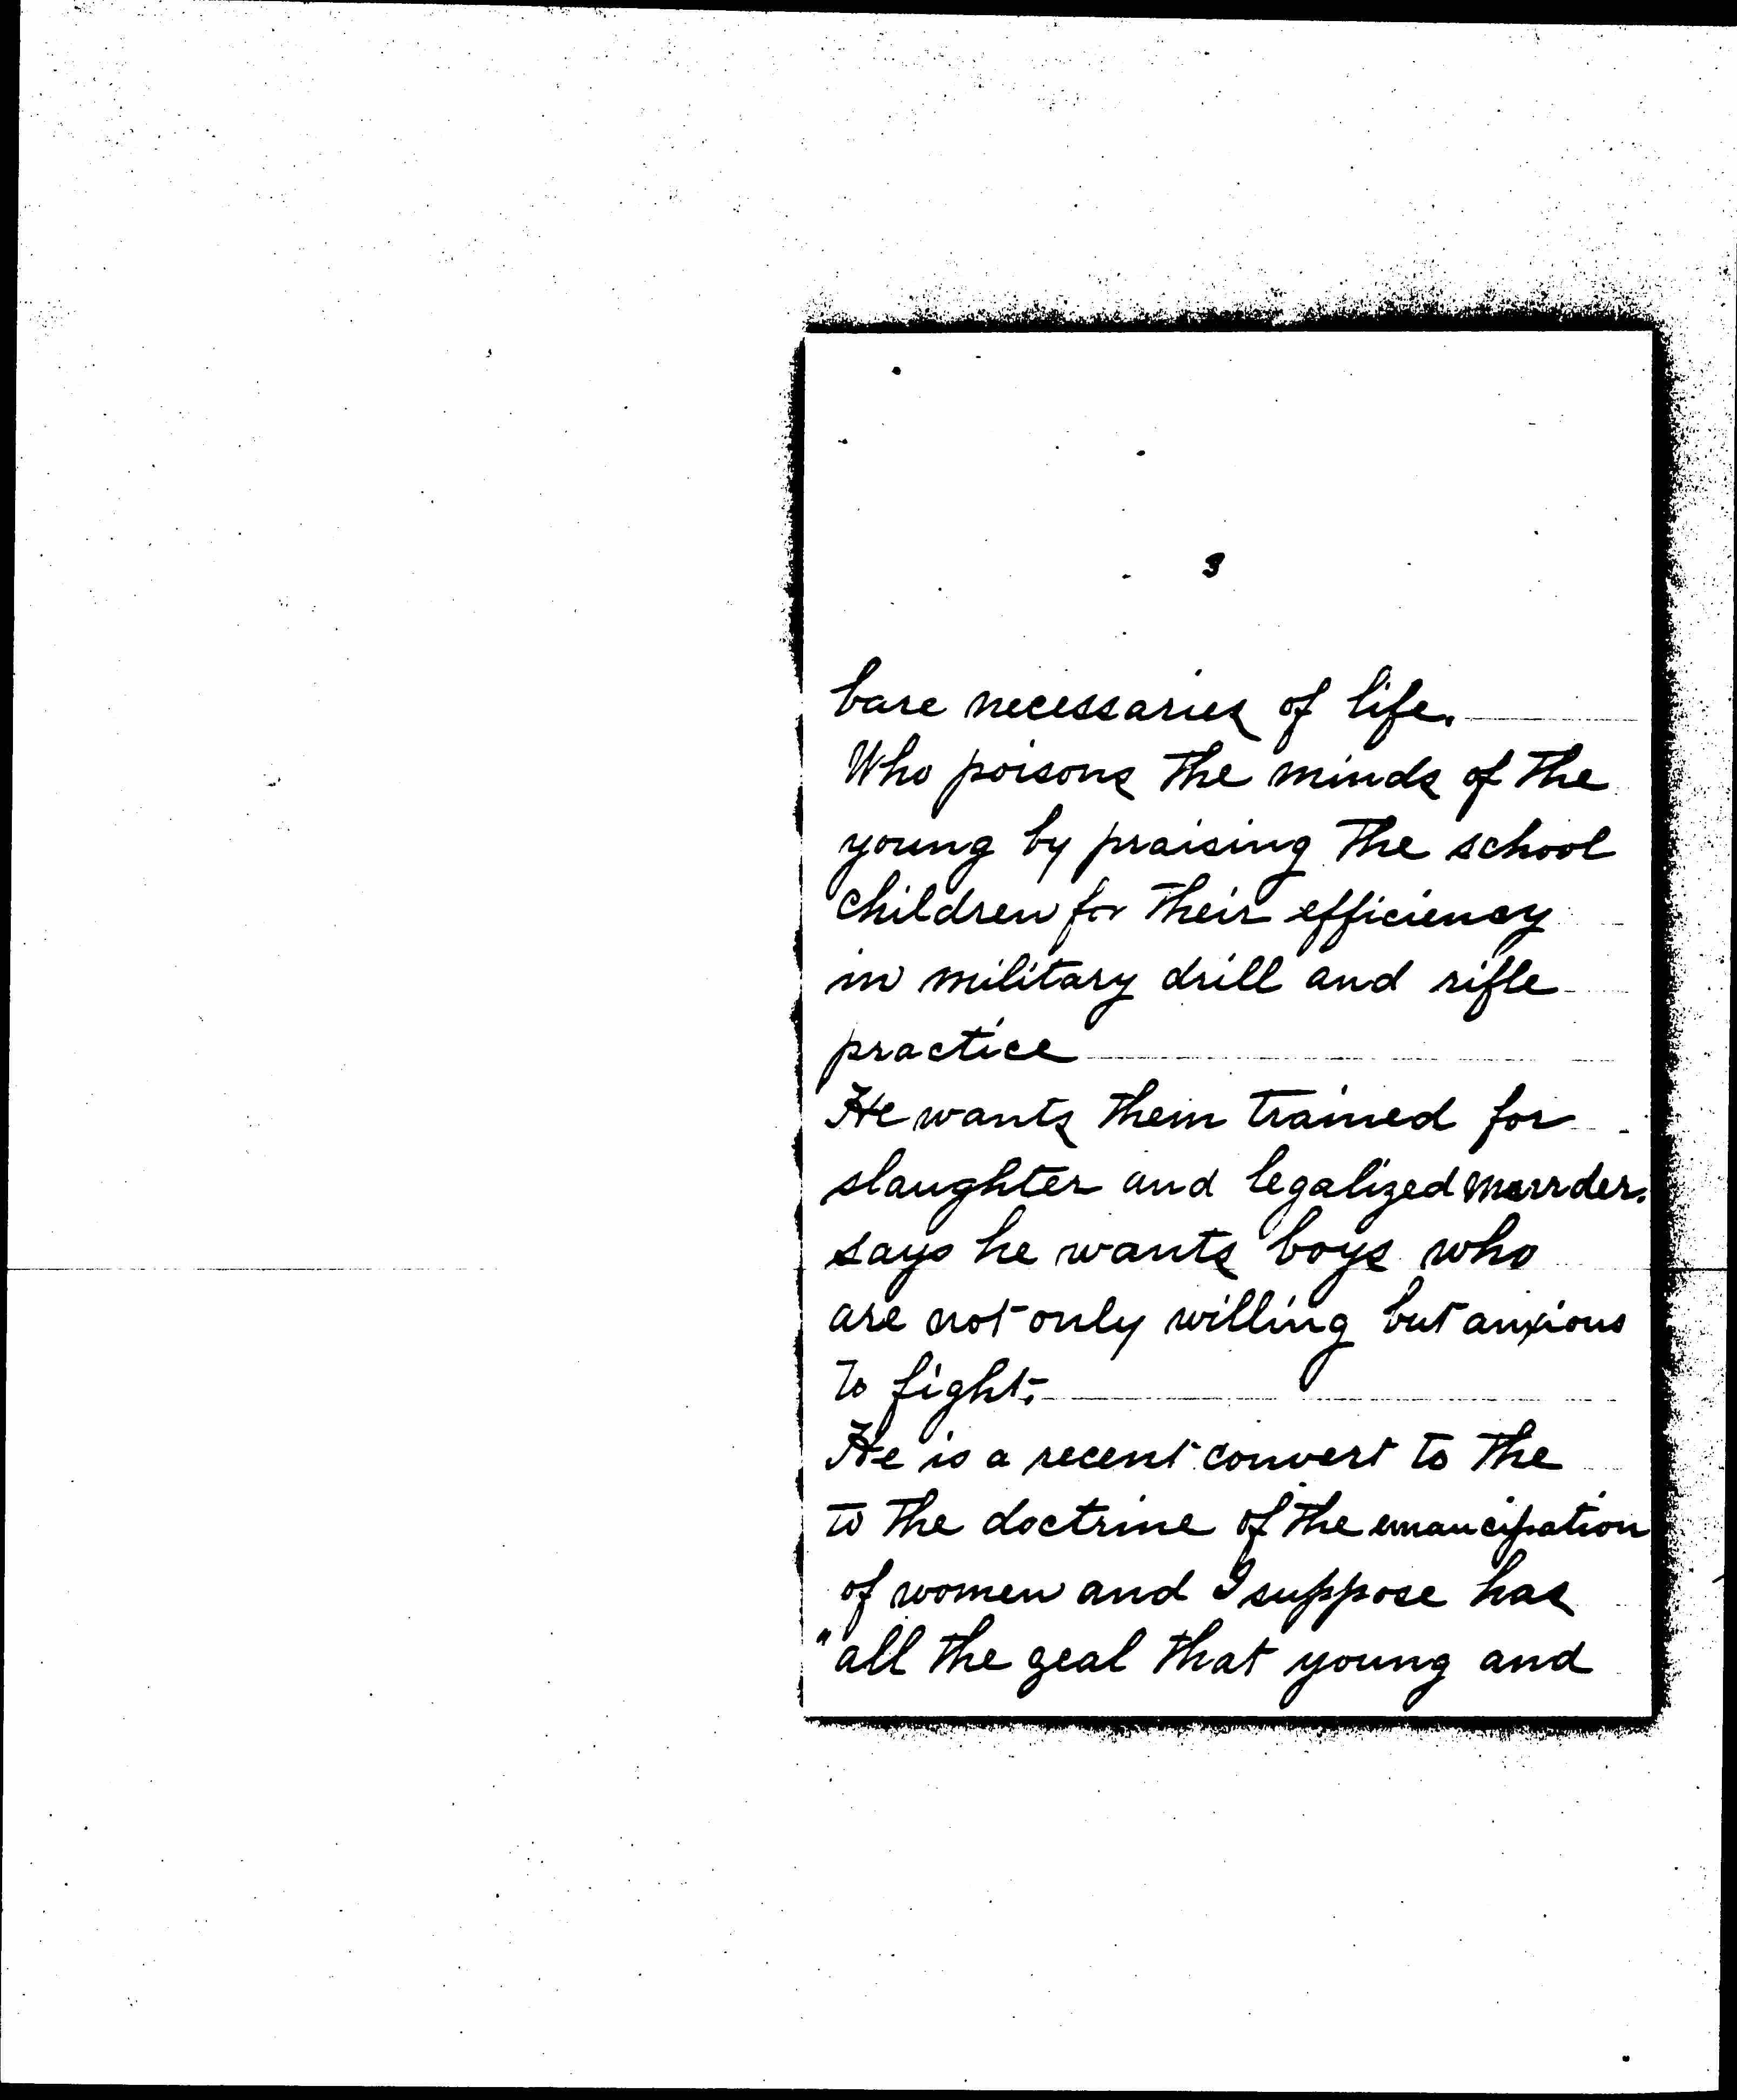 3
bare necessaries of life.
Who poisons the minds of the
young by praising the school
children for their efficiency
in military drill and rifle
practice
He wants them trained for
slaughter and legalized murrder.
says he wants boys who
are not only willing but anxious
to fight.
He is a recent convert to the
to the doctrine of the emancipation
of women and I suppose has
"all the zeal that young and